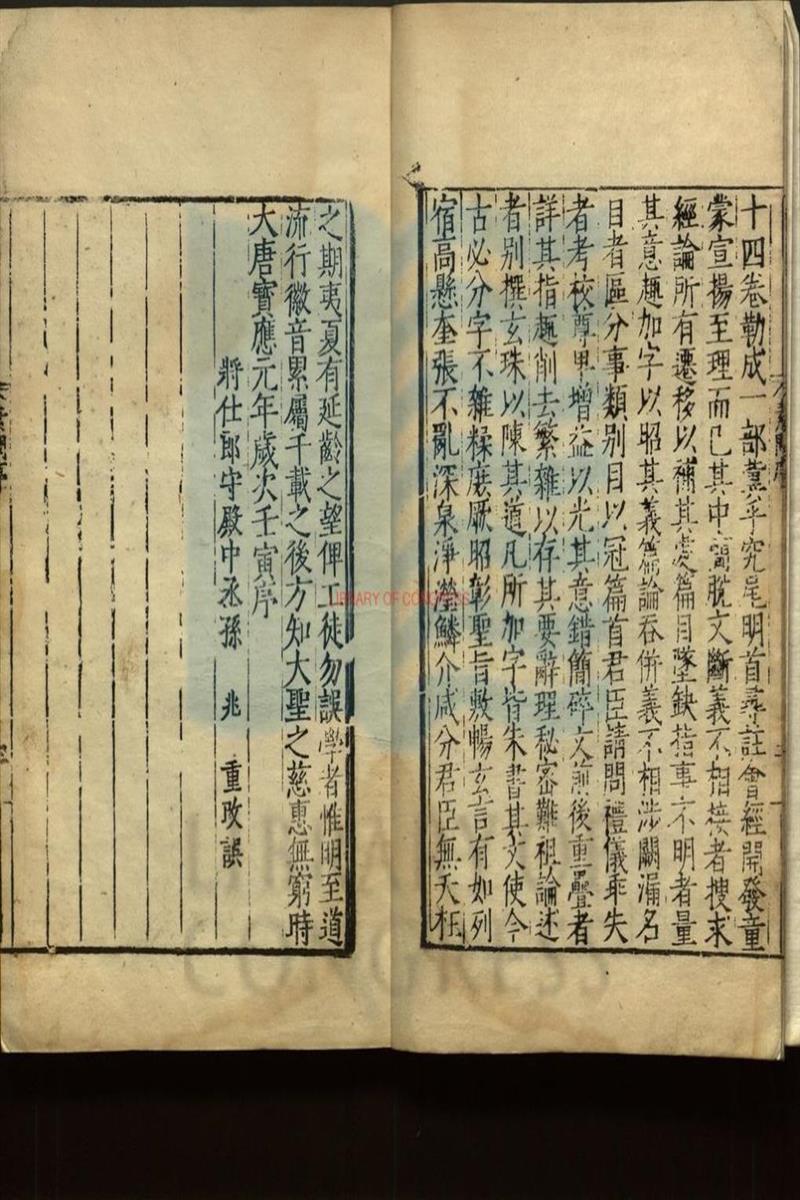 十四卷勒成一部冀乎究尾明首尋註會經開發童
蒙宣揚至理而已其中簡脫文斷義不相接者搜求
經論所有遷移以補其處篇目墜缺指事不明者量
其意趣加字以昭其義篇論吞併義不相涉闕漏名
目者區分事類別目以冠篇首君臣請問禮儀乖失
者考校尊卑增益以光其意錯簡碎文前後重疊者
詳其指趣削去繁雜以存其要辭理秘密難粗論述
者別撰玄珠以陳其道凡所加字皆朱書其文使今
古必分字不雜糅庶厥昭彰聖旨敷暢玄言有如列
宿高懸奎張不亂深泉淨瀅鱗介咸分君臣無夭枉
之期夷夏有延齡之望俾工徒勿誤學者惟明至道
流行徽音累屬千載之後方知大聖之慈惠無窮時
大唐寶應元年歲次壬寅序
將仕郎守殿中丞孫 兆 重改誤
LIBRARY OF CONGRESS
CONGRESS